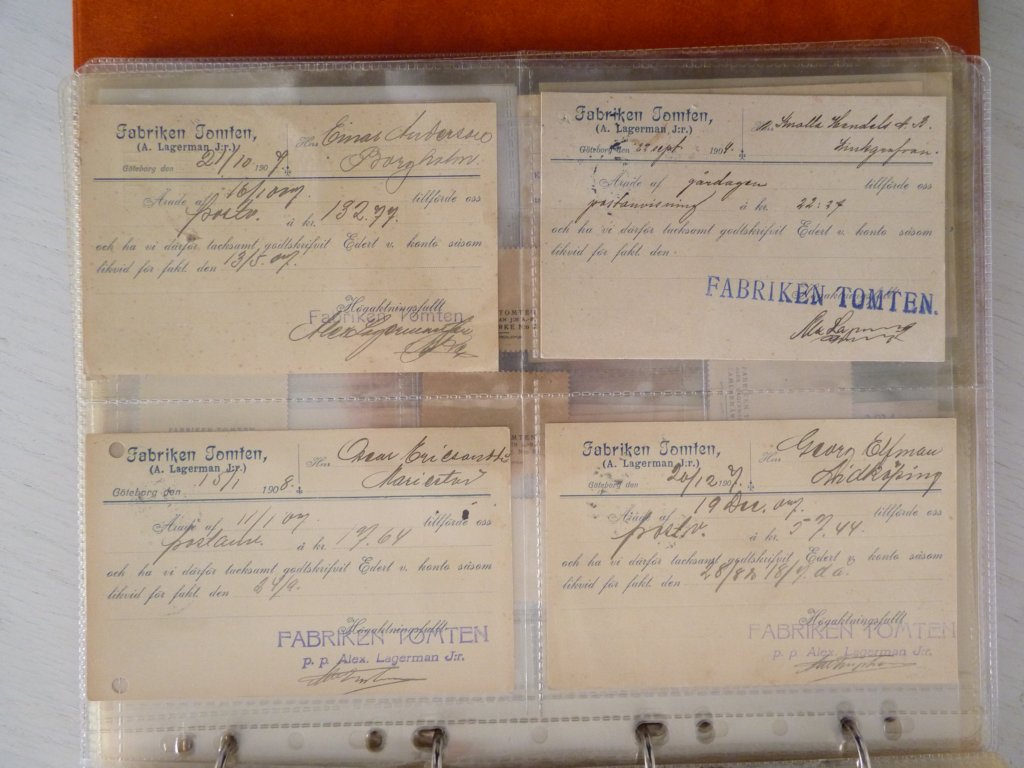 Fabriken Tomten,
(A. Lagerman J:r.)
Göteborg den 21/10 1907.
Herr Einar Anderson
Borgholm.
Ärade af 16/10 07.
tillförde oss
postv. à kr. 132.77.
och ha vi därför tacksamt godtskrifvit Edert v. konto såsom
likvid för fakt. den 13/5. 07.
Högaktningsfullt
Fabriken Tomten
Alex Lagerman Jr
Fabriken Tomten,
(A. Lagerman J:r.)
Göteborg den 22 sept 1904.
Handels A. B.
Zinkgrufvan.
Ärade af gårdagen tillförde oss
postanvisning à kr. 22:34
och ha vi därför tacksamt godtskrifvit Edert v. konto såsom
likvid för fakt. den
Högaktningsfullt
FABRIKEN TOMTEN.
Fabriken Tomten,
(A. Lagerman J:r.)
Göteborg den 13/1 1908.
Herr Oscar
Mariestad
Ärade af 11/1 07 tillförde oss
à kr. 17.64
och ha vi därför tacksamt godtskrifvit Edert v. konto såsom
likvid för fakt. den 24/9.
Högaktningsfullt
FABRIKEN TOMTEN
p. p. Alex. Lagerman J:r.
Fabriken Tomten,
(A. Lagerman J:r.)
Göteborg den 20/12 1907.
Herr Georg Elfman
Lidköping
Ärade af 19 Dec. 07. tillförde oss
postv. à kr. 57.44.
och ha vi därför tacksamt godtskrifvit Edert v. konto såsom
likvid för fakt. den 28/8 18/9. d.a.
Högaktningsfullt
FABRIKEN TOMTEN
p. p. Alex. Lagerman J:r.